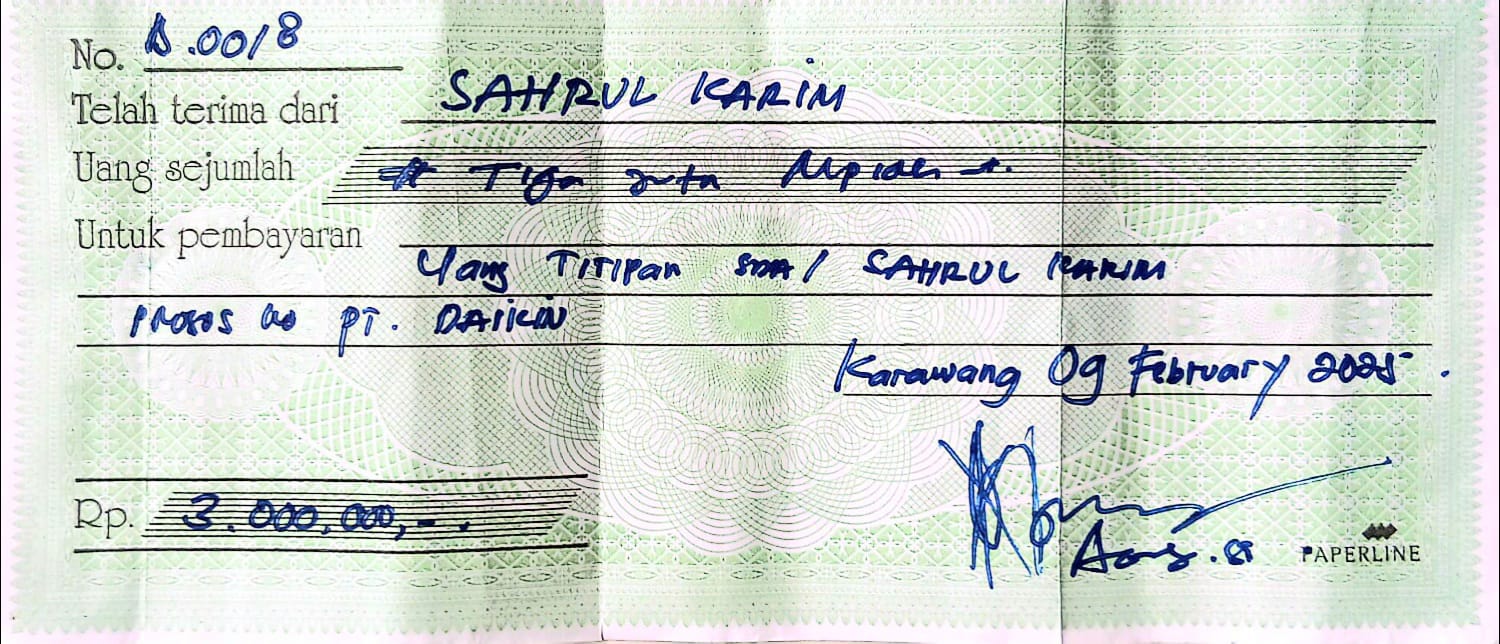 No. A.0018
Telah terima dari SAHRUL KARIM
Uang sejumlah # Tiga Juta Rupiah
Untuk pembayaran
Uang TITIPAN SDR/ SAHRUL KARIM
PROSES KE PT. DAIKIN
Karawang 09 February 2025.
Rp. 3.000,000,-.
PAPERLINE